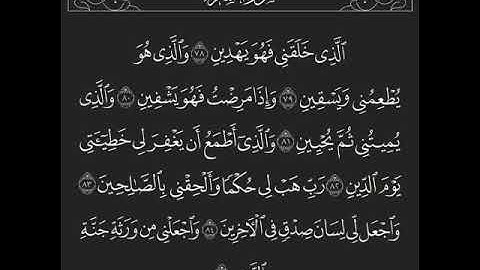 ٱلَّذِى خَلَقَنِى فَهُوَ يَهْدِينِ ٧٨ وَٱلَّذِى هُوَ
يُطْعِمُنِى وَيَسْقِينِ ٧٩ وَإِذَا مَرِضْتُ فَهُوَ يَشْفِينِ ٨٠ وَٱلَّذِى
يُمِيتُنِى ثُمَّ يُحْيِينِ ٨١ وَٱلَّذِىٓ أَطْمَعُ أَن يَغْفِرَ لِى خَطِيٓـَٔتِى
يَوْمَ ٱلدِّينِ ٨٢ رَبِّ هَبْ لِى حُكْمًا وَأَلْحِقْنِى بِٱلصَّـٰلِحِينَ ٨٣
وَٱجْعَل لِّى لِسَانَ صِدْقٍ فِى ٱلْـَٔاخِرِينَ ٨٤ وَٱجْعَلْنِى مِن وَرَثَةِ جَنَّةِ